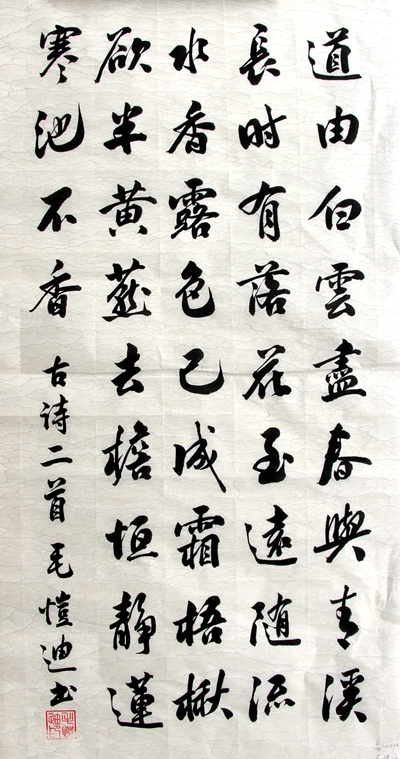 道由白雲盡春與青溪
長时有落花至遠随流
水香露色已成霜梧楸
欲半黄燕去檐恒静蓮
寒池不香
古诗二首毛愷迪书